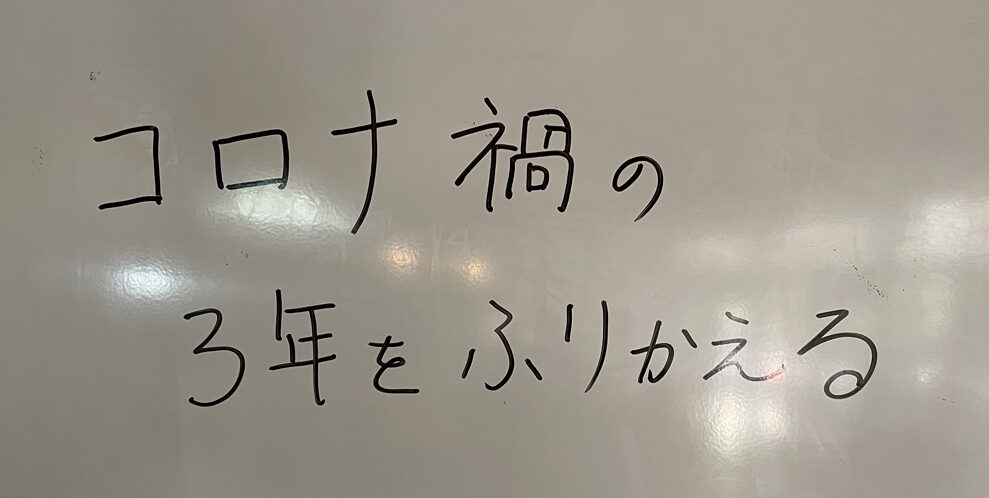 コロナ禍の
3年をふりかえる